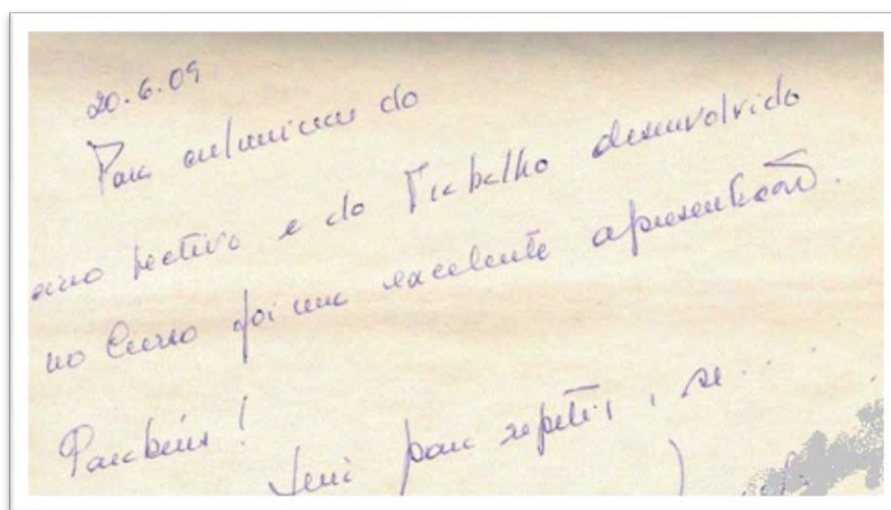 20.6.09
Para culminar do
ano lectivo e do Trabalho desenvolvido
no Curso foi uma excelente apresentação.
Parabéns!
para repetir, se...